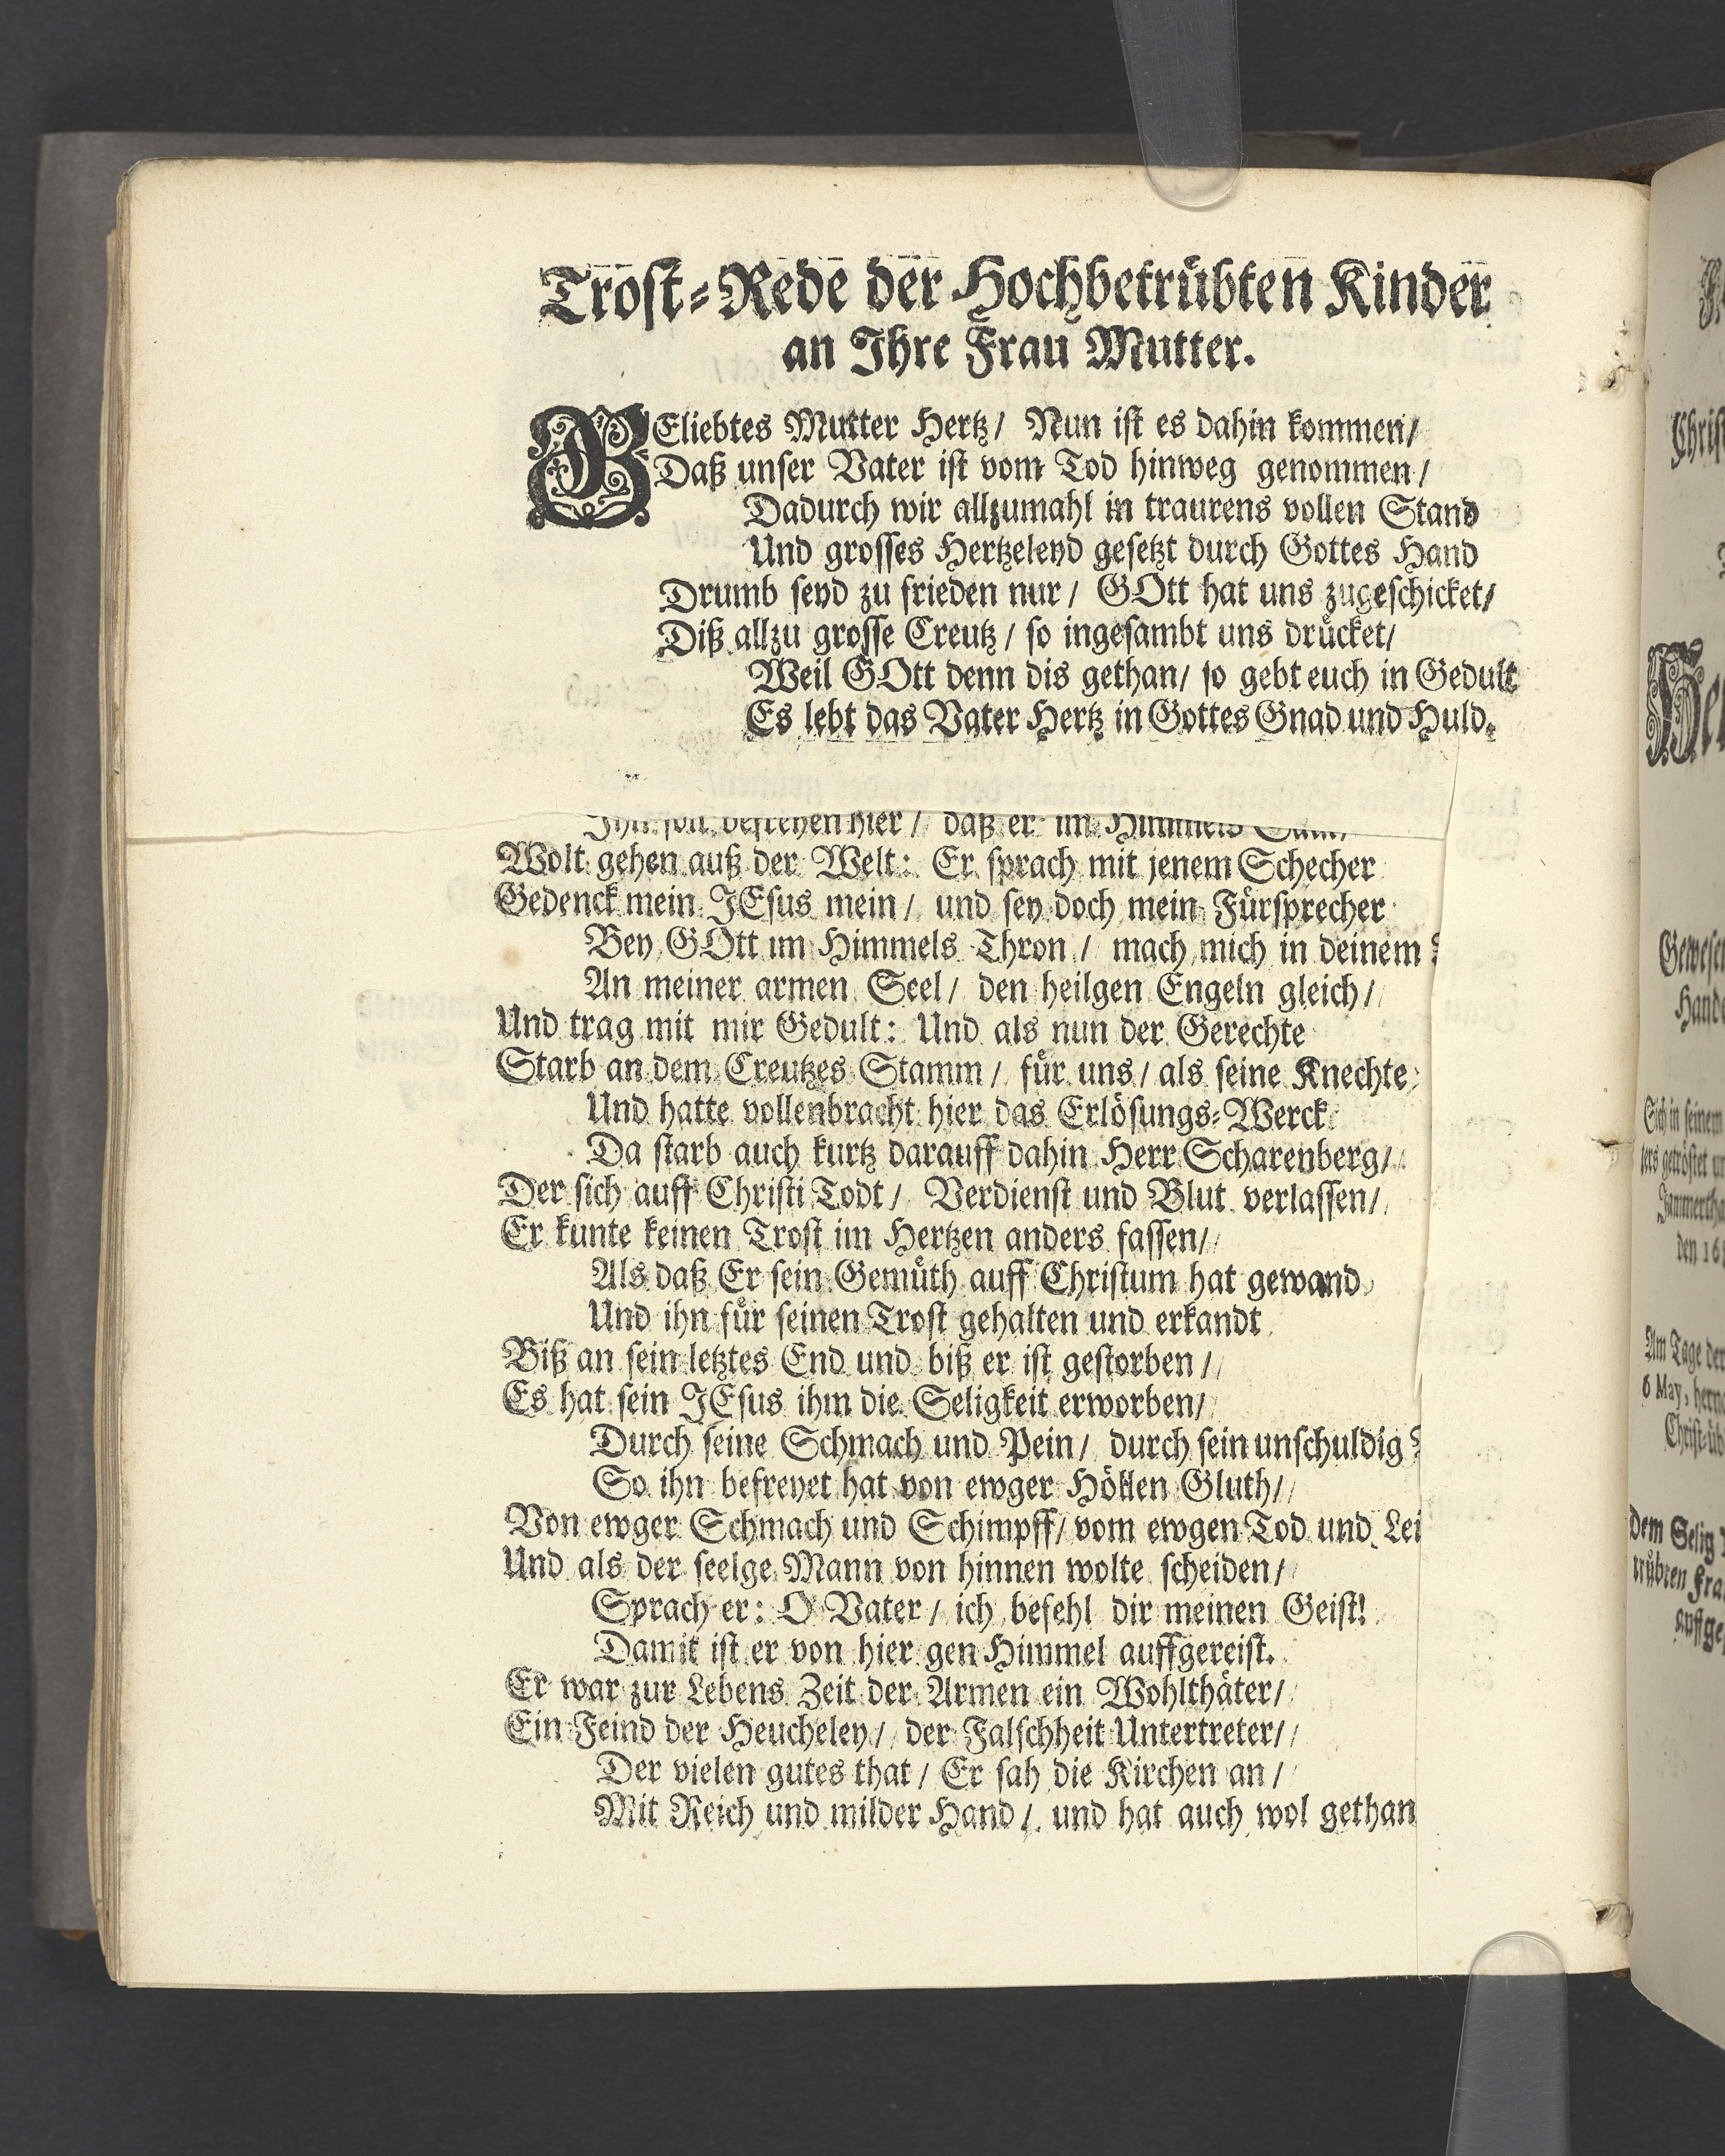 Trost-Rede der Hochbetrübten Kinder
an Ihre Frau Mutter.
GEliebtes Mutter Hertz/ Nun ist es dahin kommen/
Daß unser Vater ist vom Tod hinweg genommen/
Dadurch wir allzumahl in traurens vollen Stand
Und grosses Hertzeleyd gesetzt durch Gottes Hand
Drumb seyd zu frieden nur/ GOtt hat uns zugeschicket/
Diß allzu grosse Creutz/ so ingesambt uns drücket/
Weil GOtt denn dis gethan/ so gebt euch in Gedult
Es lebt das Vater Hertz in Gottes Gnad und Huld.
befreyen hier/ daß er im Himmels
Wolt gehen auß der Welt: Er sprach mit jenem Schecher
Gedenck mein JEsus mein/ und sey doch mein Fürsprecher
Bey GOtt im Himmels Thron/ mach mich in deinem
An meiner armen Seel/ den heilgen Engeln gleich/
Und trag mit mir Gedult: Und als nun der Gerechte
Starb an dem Creutzes Stamm/ für uns/ als seine Knechte
Und hatte vollenbracht hier das Erlösungs-Werck
Da starb auch kurtz darauff dahin Herr Scharenberg/
Der sich auff Christi Todt/ Verdienst und Blut verlassen/
Er kunte keinen Trost im Hertzen anders fassen/
Als daß Er sein Gemüth auff Christum hat gewand
Und ihn für seinen Trost gehalten und erkandt
Biß an sein letztes End und biß er ist gestorben/
Es hat sein JEsus ihm die Seligkeit erworben/
Durch seine Schmach und Pein/ durch sein unschuldig
So ihn befreyet hat von ewger Höllen Gluth/
Von ewger Schmach und Schimpff/ vom ewgen Tod und Lei
Und als der seelge Mann von hinnen wolte scheiden/
Sprach er: O Vater/ ich befehl dir meinen Geist!
Damit ist er von hier gen Himmel auffgereist.
Er war zur Lebens Zeit der Armen ein Wohlthäter/
Ein Feind der Heucheley/ der Falschheit Untertreter/
Der vielen gutes that/ Er sah die Kirchen an/
Mit Reich und milder Hand/ und hat auch wol gethan
Christ
Gewesen
Hand
Sich in seinem
ters getröstet
Jammertha
den 16
Am Tage der
6 May, hern
Christ-üb
Dem Selig
trübten Fra
auffge